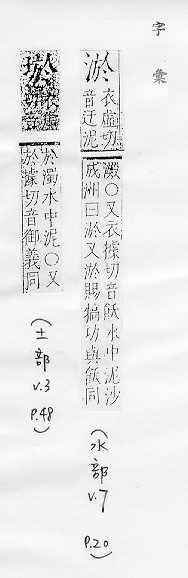 字彙
淤
衣虛切
音迂泥
澱○又衣據切音飫水中泥沙
成洲曰淤又淤賜犒功與飫同
(水部 v.7 p.20)
衣虛
切音
於濁水中泥○又
於據切音御義同
(土部 v.3 p.48)